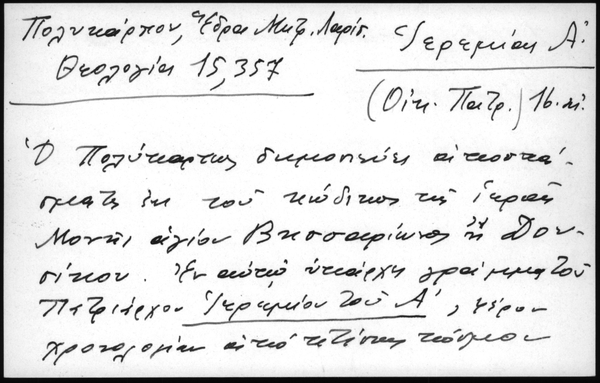 Πολυκάρπου, Ἕδραι Μητρ. Λαρίσ.
Θεολογία 15, 357
Ἱερεμίας Α΄.
(Οἰκ. Πατρ.) 16. αἰ.
Ὁ Πολύκαρπος δημοσιεύει ἀποσπά-
σματα ἐκ τοῦ κώδικος τῆς ἱερᾶς
Μονῆς ἁγίου Βησσαρίωνος ἢ Δου-
σίκου. Ἐν αὐτῷ ὑπάρχει γράμμα τοῦ
Πατριάρχου Ἱερεμίου τοῦ Α΄, φέρον
χρονολογίαν ἀπὸ κτίσεως κόσμου